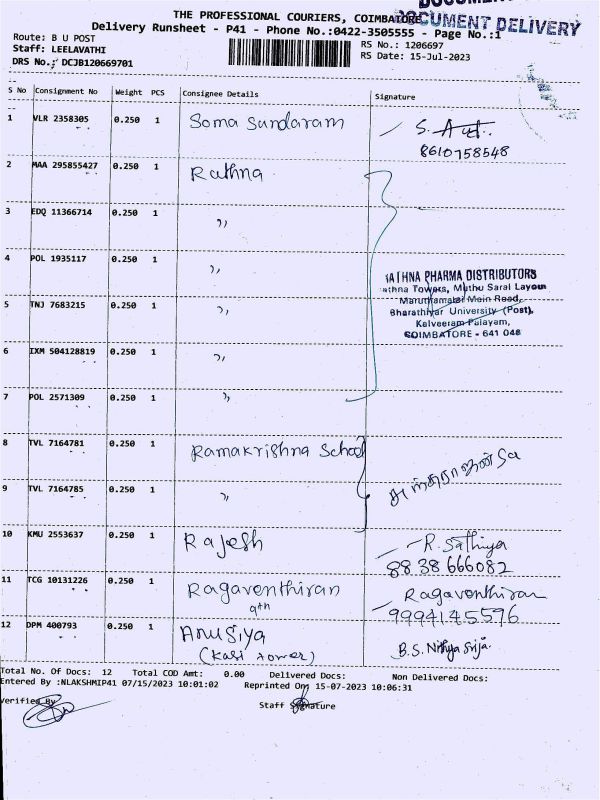 DOCUMENT DELIVERY
THE PROFESSIONAL COURIERS, COIMBATORE
Delivery Runsheet - P41 - Phone No.:0422-3505555 - Page No.:1
Route: B U POST
RS No.: 1206697
Staff: LEELAVATHI
RS Date: 15-Jul-2023
DRS No.: DCJB120669701
S No Consignment No Weight PCS Consignee Details Signature
1 VLR 2358305 0.250 1 Soma Sundaram S.
8610758548
2 MAA 295855427 0.250 1 Rathna
3 EDQ 11366714 0.250 1 ,,
4 POL 1935117 0.250 1 ,,
ATHNA PHARMA DISTRIBUTORS
athna Towers, Muthu Saral Layout
Maruthamalai Main Road,
5 TNJ 7683215 0.250 1 ,,
Bharathiyar University (Post),
Kalveeram Palayam,
COIMBATORE - 641 046
6 IXM 504128819 0.250 1 ,,
7 POL 2571309 0.250 1 ,,
8 TVL 7164781 0.250 1 Ramakrishna School
9 TVL 7164785 0.250 1 ,,
10 KMU 2553637 0.250 1 Rajesh R. Sathiya
8838666082
11 TCG 10131226 0.250 1 Ragaventhiran Ragaventhiran
9th 9994145576
12 DPM 400793 0.250 1 Anusiya B.S. Nithya Srija.
(Kasi tower)
Total No. Of Docs: 12 Total COD Amt: 0.00 Delivered Docs: Non Delivered Docs:
Entered By :NLAKSHMIP41 07/15/2023 10:01:02 Reprinted On: 15-07-2023 10:06:31
Verified By Staff Signature